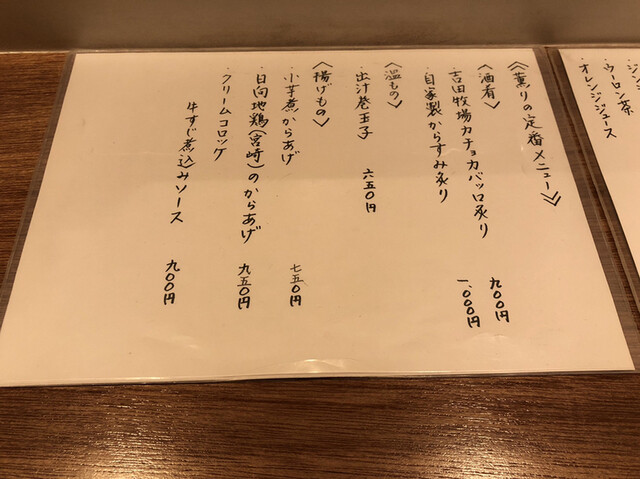 ジン
・ウーロン茶
・オレンジジュース
《薫りの定番メニュー》
〈酒肴〉
・吉田牧場カチョカバッロ炙り 九〇〇円
・自家製からすみ炙り 一、〇〇〇円
〈温もの〉
・出汁巻玉子 六五〇円
〈揚げもの〉
・小芋煮からあげ 七五〇円
・日向地鶏(宮崎)のからあげ 九五〇円
・クリームコロッケ
牛すじ煮込みソース 九〇〇円